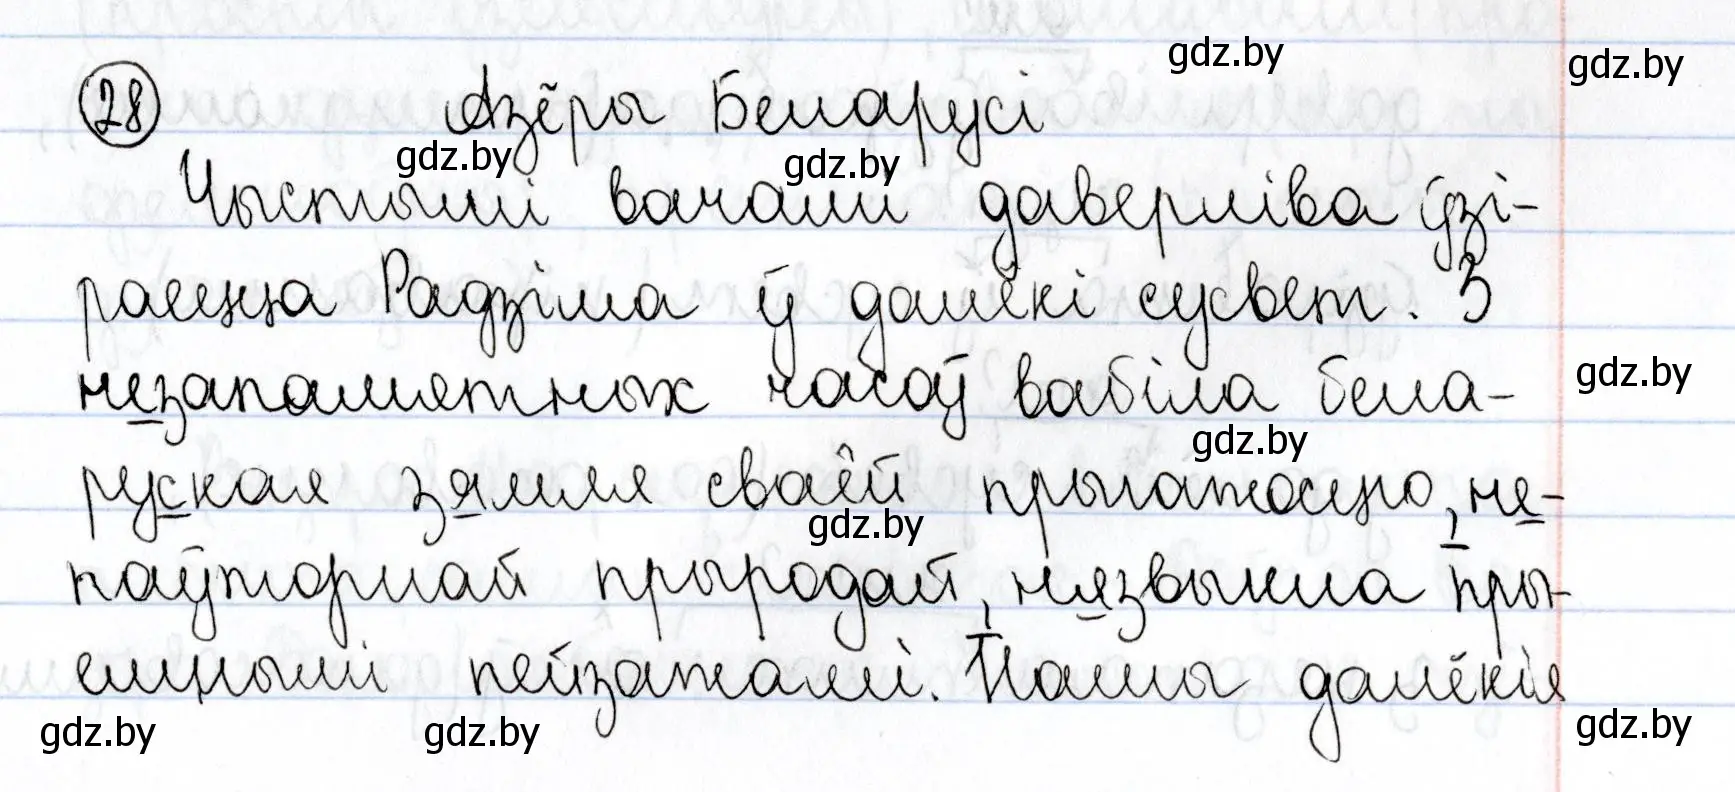 gdz.by
gdz.by
28 Азёры Беларусі
gdz.by gdz.by
Чыстымі вачамі даверліва ўзі-
раецца Радзіма ў далёкі сусвет. З
незапамятных часаў вабіла бела-
gdz.by
gdz.by
руская зямля сваёй прыгажосцю, не-
gdz.by
паўторнай прыродай, нязвыкла пры-
емнымі пейзажамі. Нашы далёкія
gdz.by gdz.by gdz.by